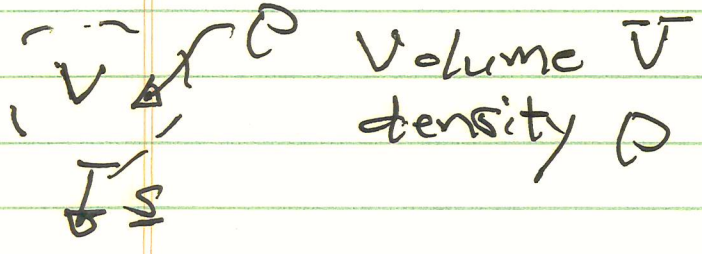 ρ
V
Volume V
density ρ
s